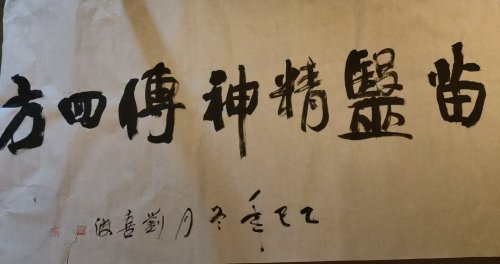 苗毉精神傳四方
乙巳年冬月劉喜波